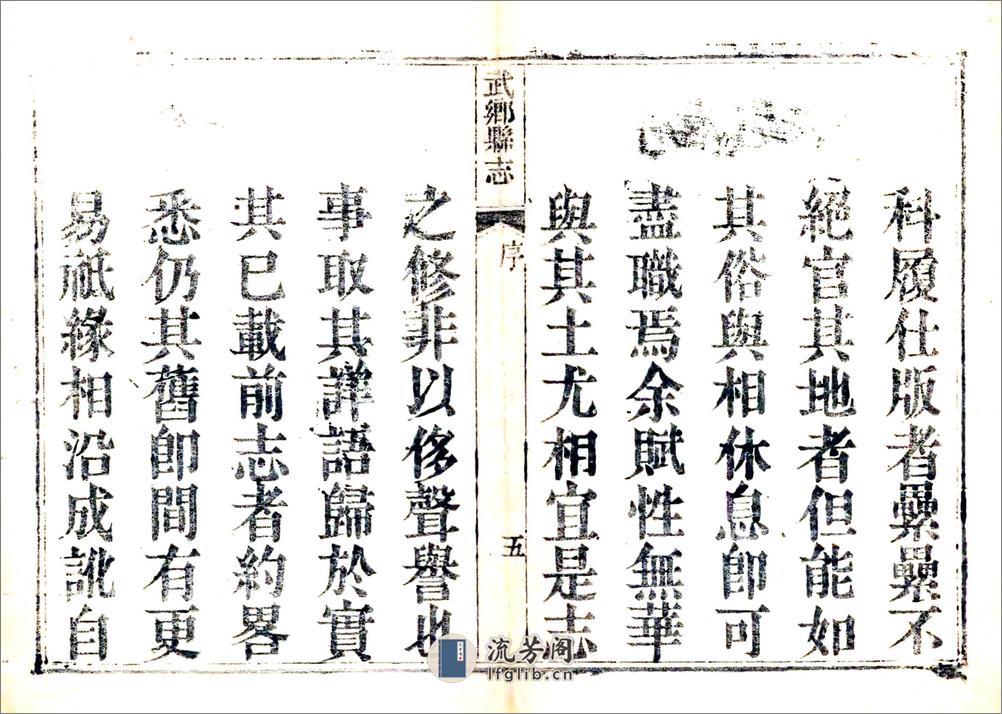 科履仕版者纍纍不
絕官其地者但能如
其俗與相休息卽可
盡職焉余賦性無華
與其土尤相宜是志
武鄉縣志
序
五
之修非以侈聲譽也
事取其詳語歸於實
其已載前志者約畧
悉仍其舊卽間有更
易祇緣相沿成訛自
流芳阁
lfglib.cn